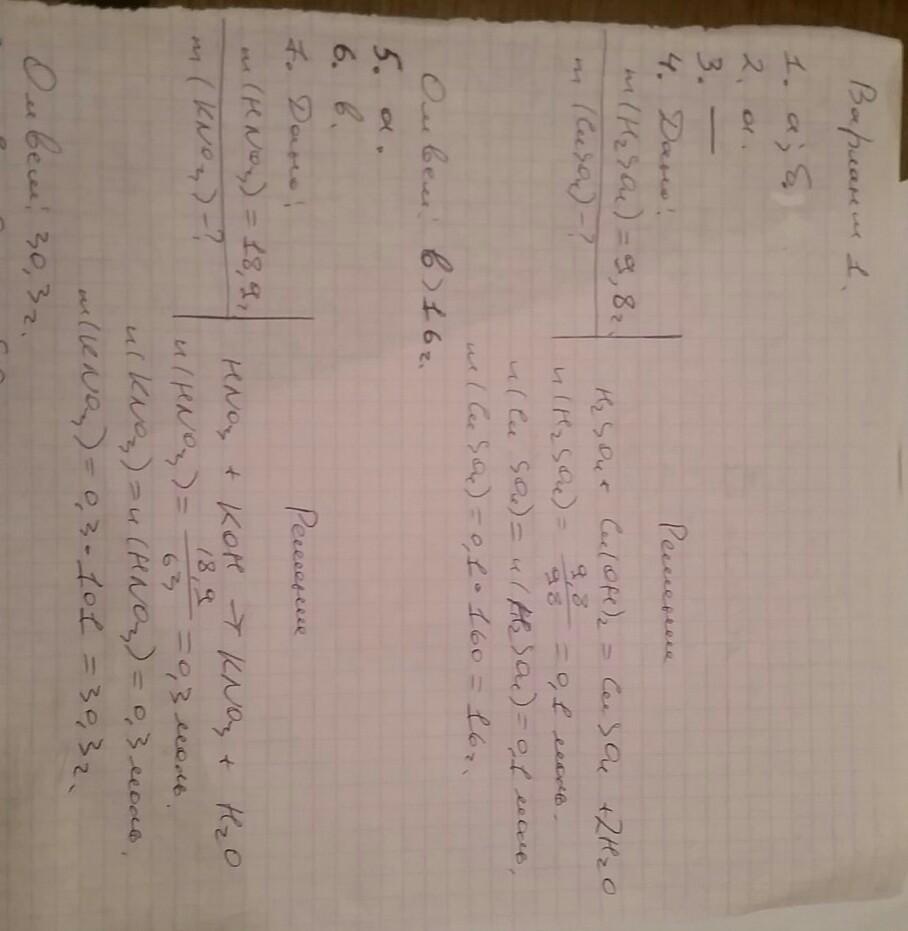 Вариант 1.
1. а; б)
2. а.
3. —
4. Дано:
m(H₂SO₄) = 9,8г.
m(CuSO₄) - ?
Решение
H₂SO₄ + Cu(OH)₂ = CuSO₄ + 2H₂O
n(H₂SO₄) = 9,8/98 = 0,1 моль.
n(CuSO₄) = n(H₂SO₄) = 0,1 моль.
m(CuSO₄) = 0,1 • 160 = 16г.
Ответ: в) 16г.
5. а.
6. в.
7. Дано:
m(HNO₃) = 18,9г
m(KNO₃) - ?
Решение
HNO₃ + KOH → KNO₃ + H₂O
n(HNO₃) = 18,9/63 = 0,3 моль.
n(KNO₃) = n(HNO₃) = 0,3 моль.
m(KNO₃) = 0,3 • 101 = 30,3г.
Ответ: 30,3г.